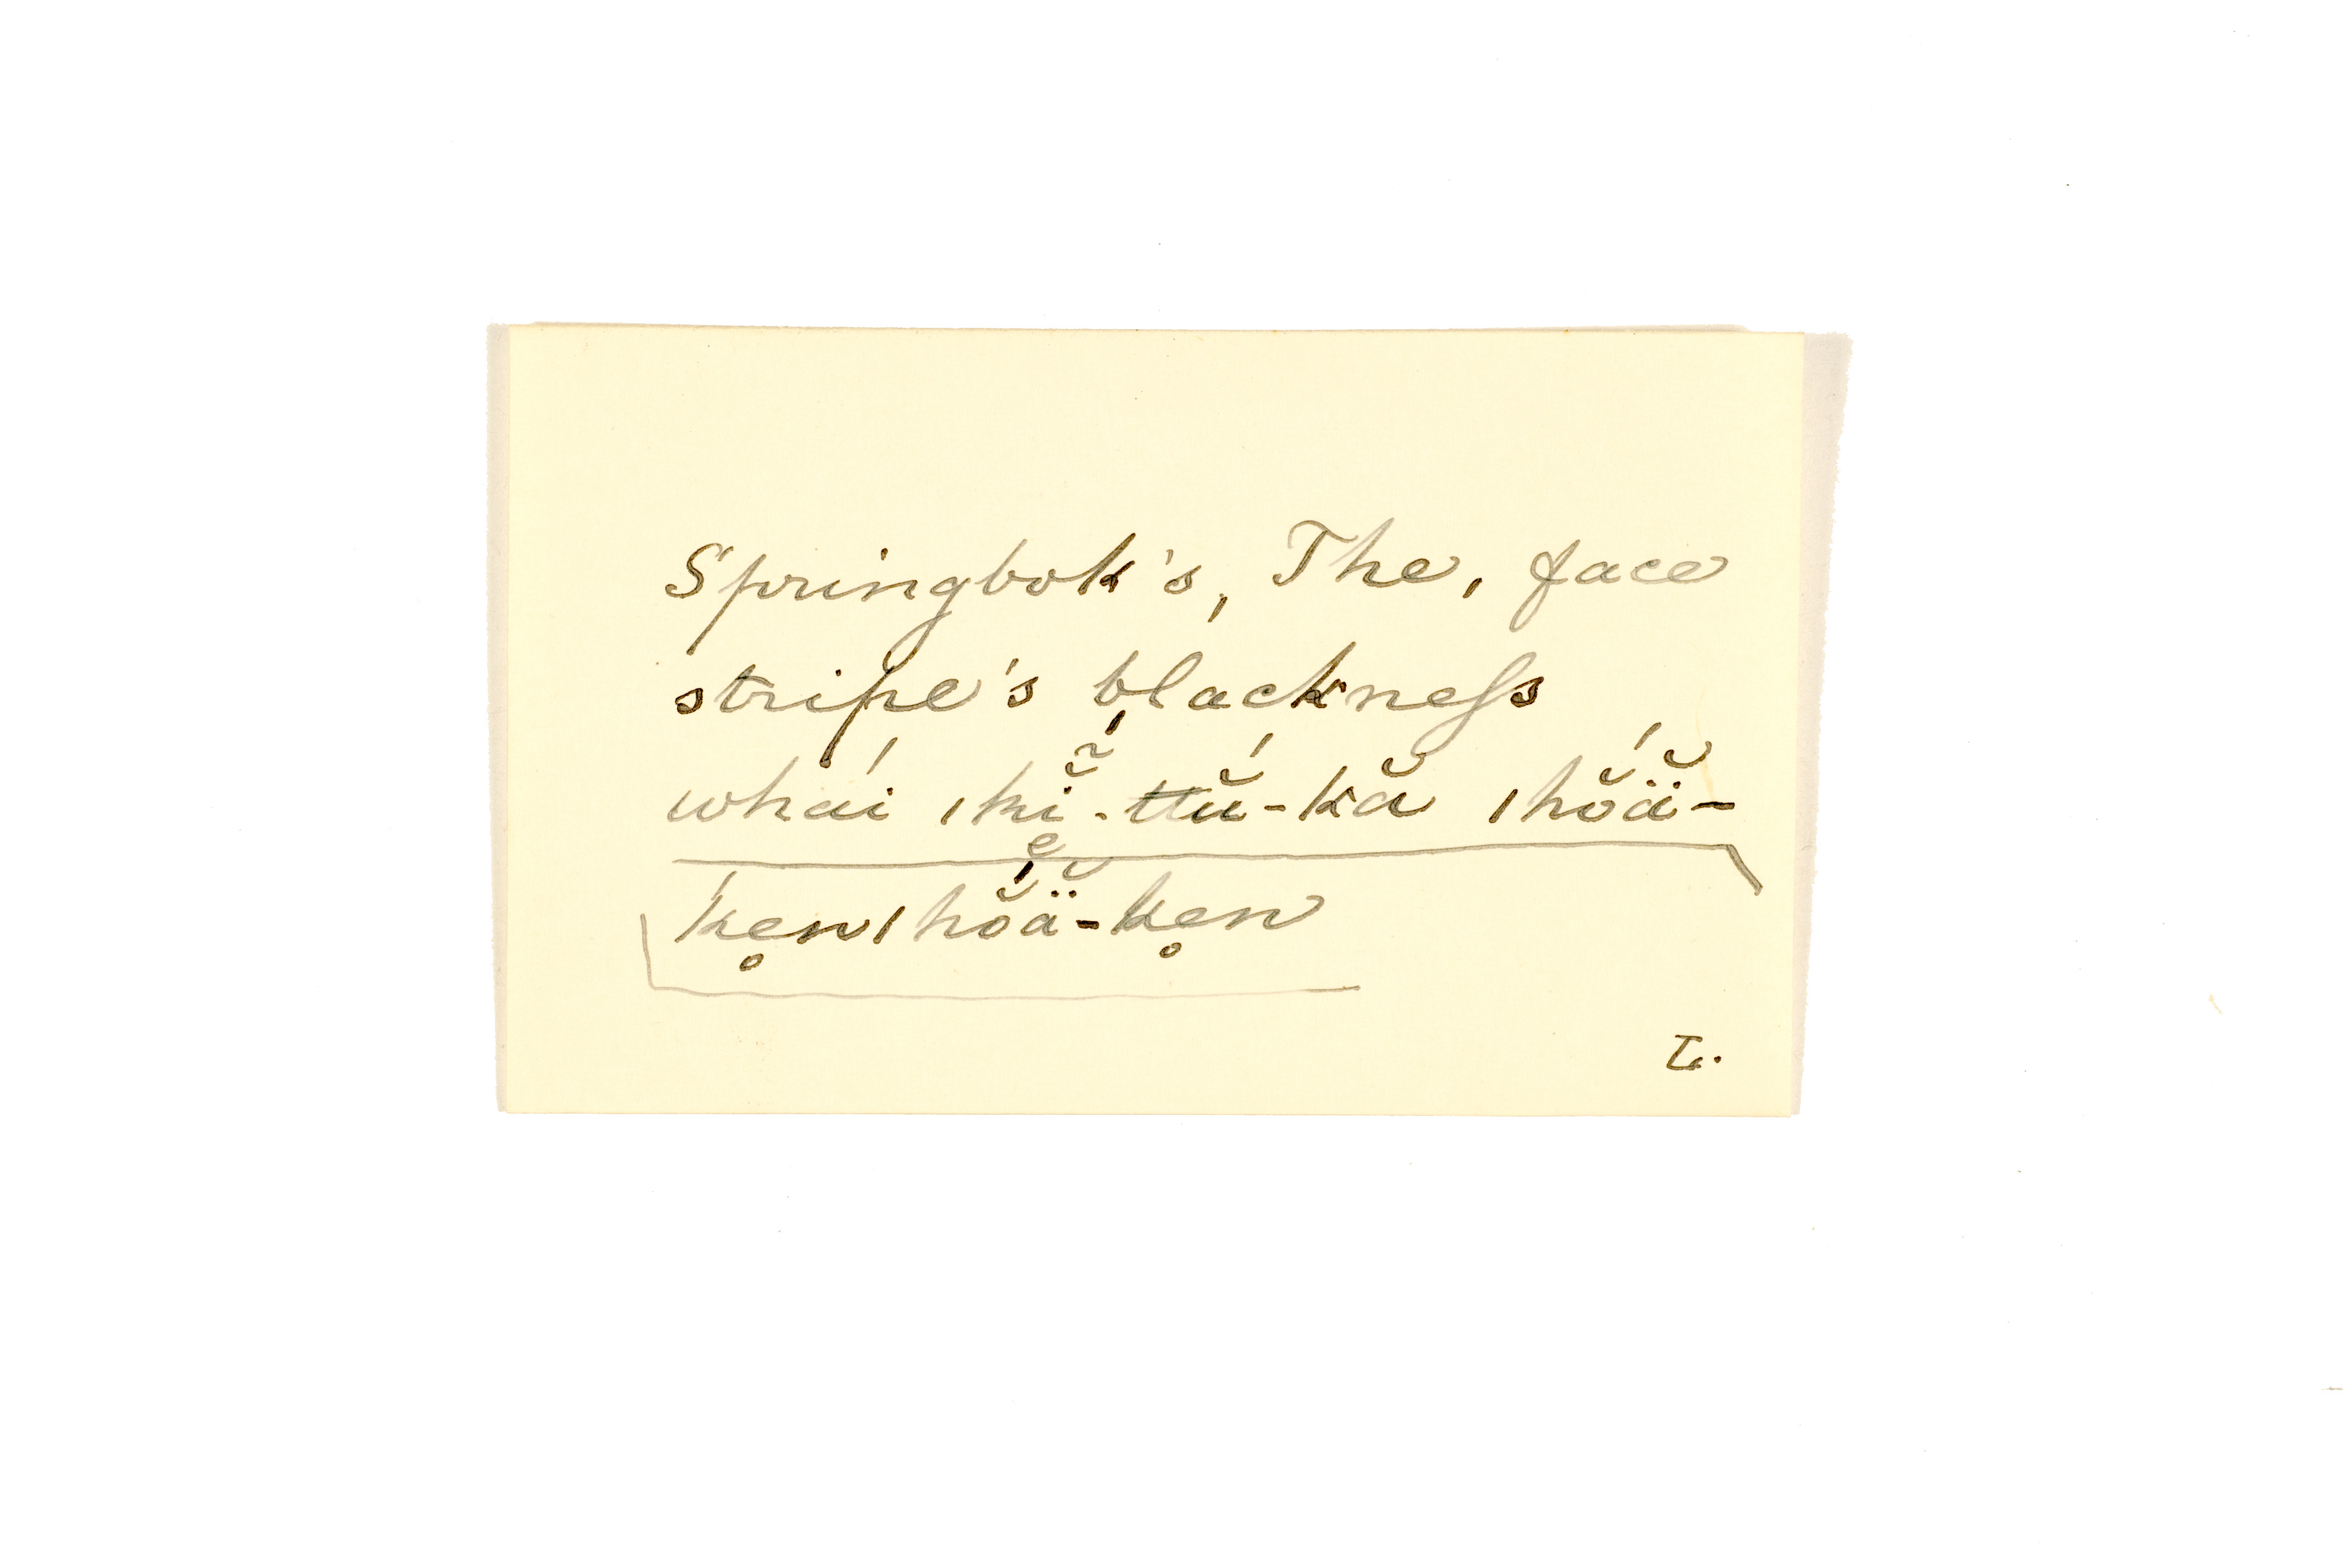 Springbok's, The, face
stripe's blackneſs
whái ǀkĭ̃-ttŭ́-kă ǀhŏ́ä̆-
ken ǀhŏ́ä̆-ken
L.